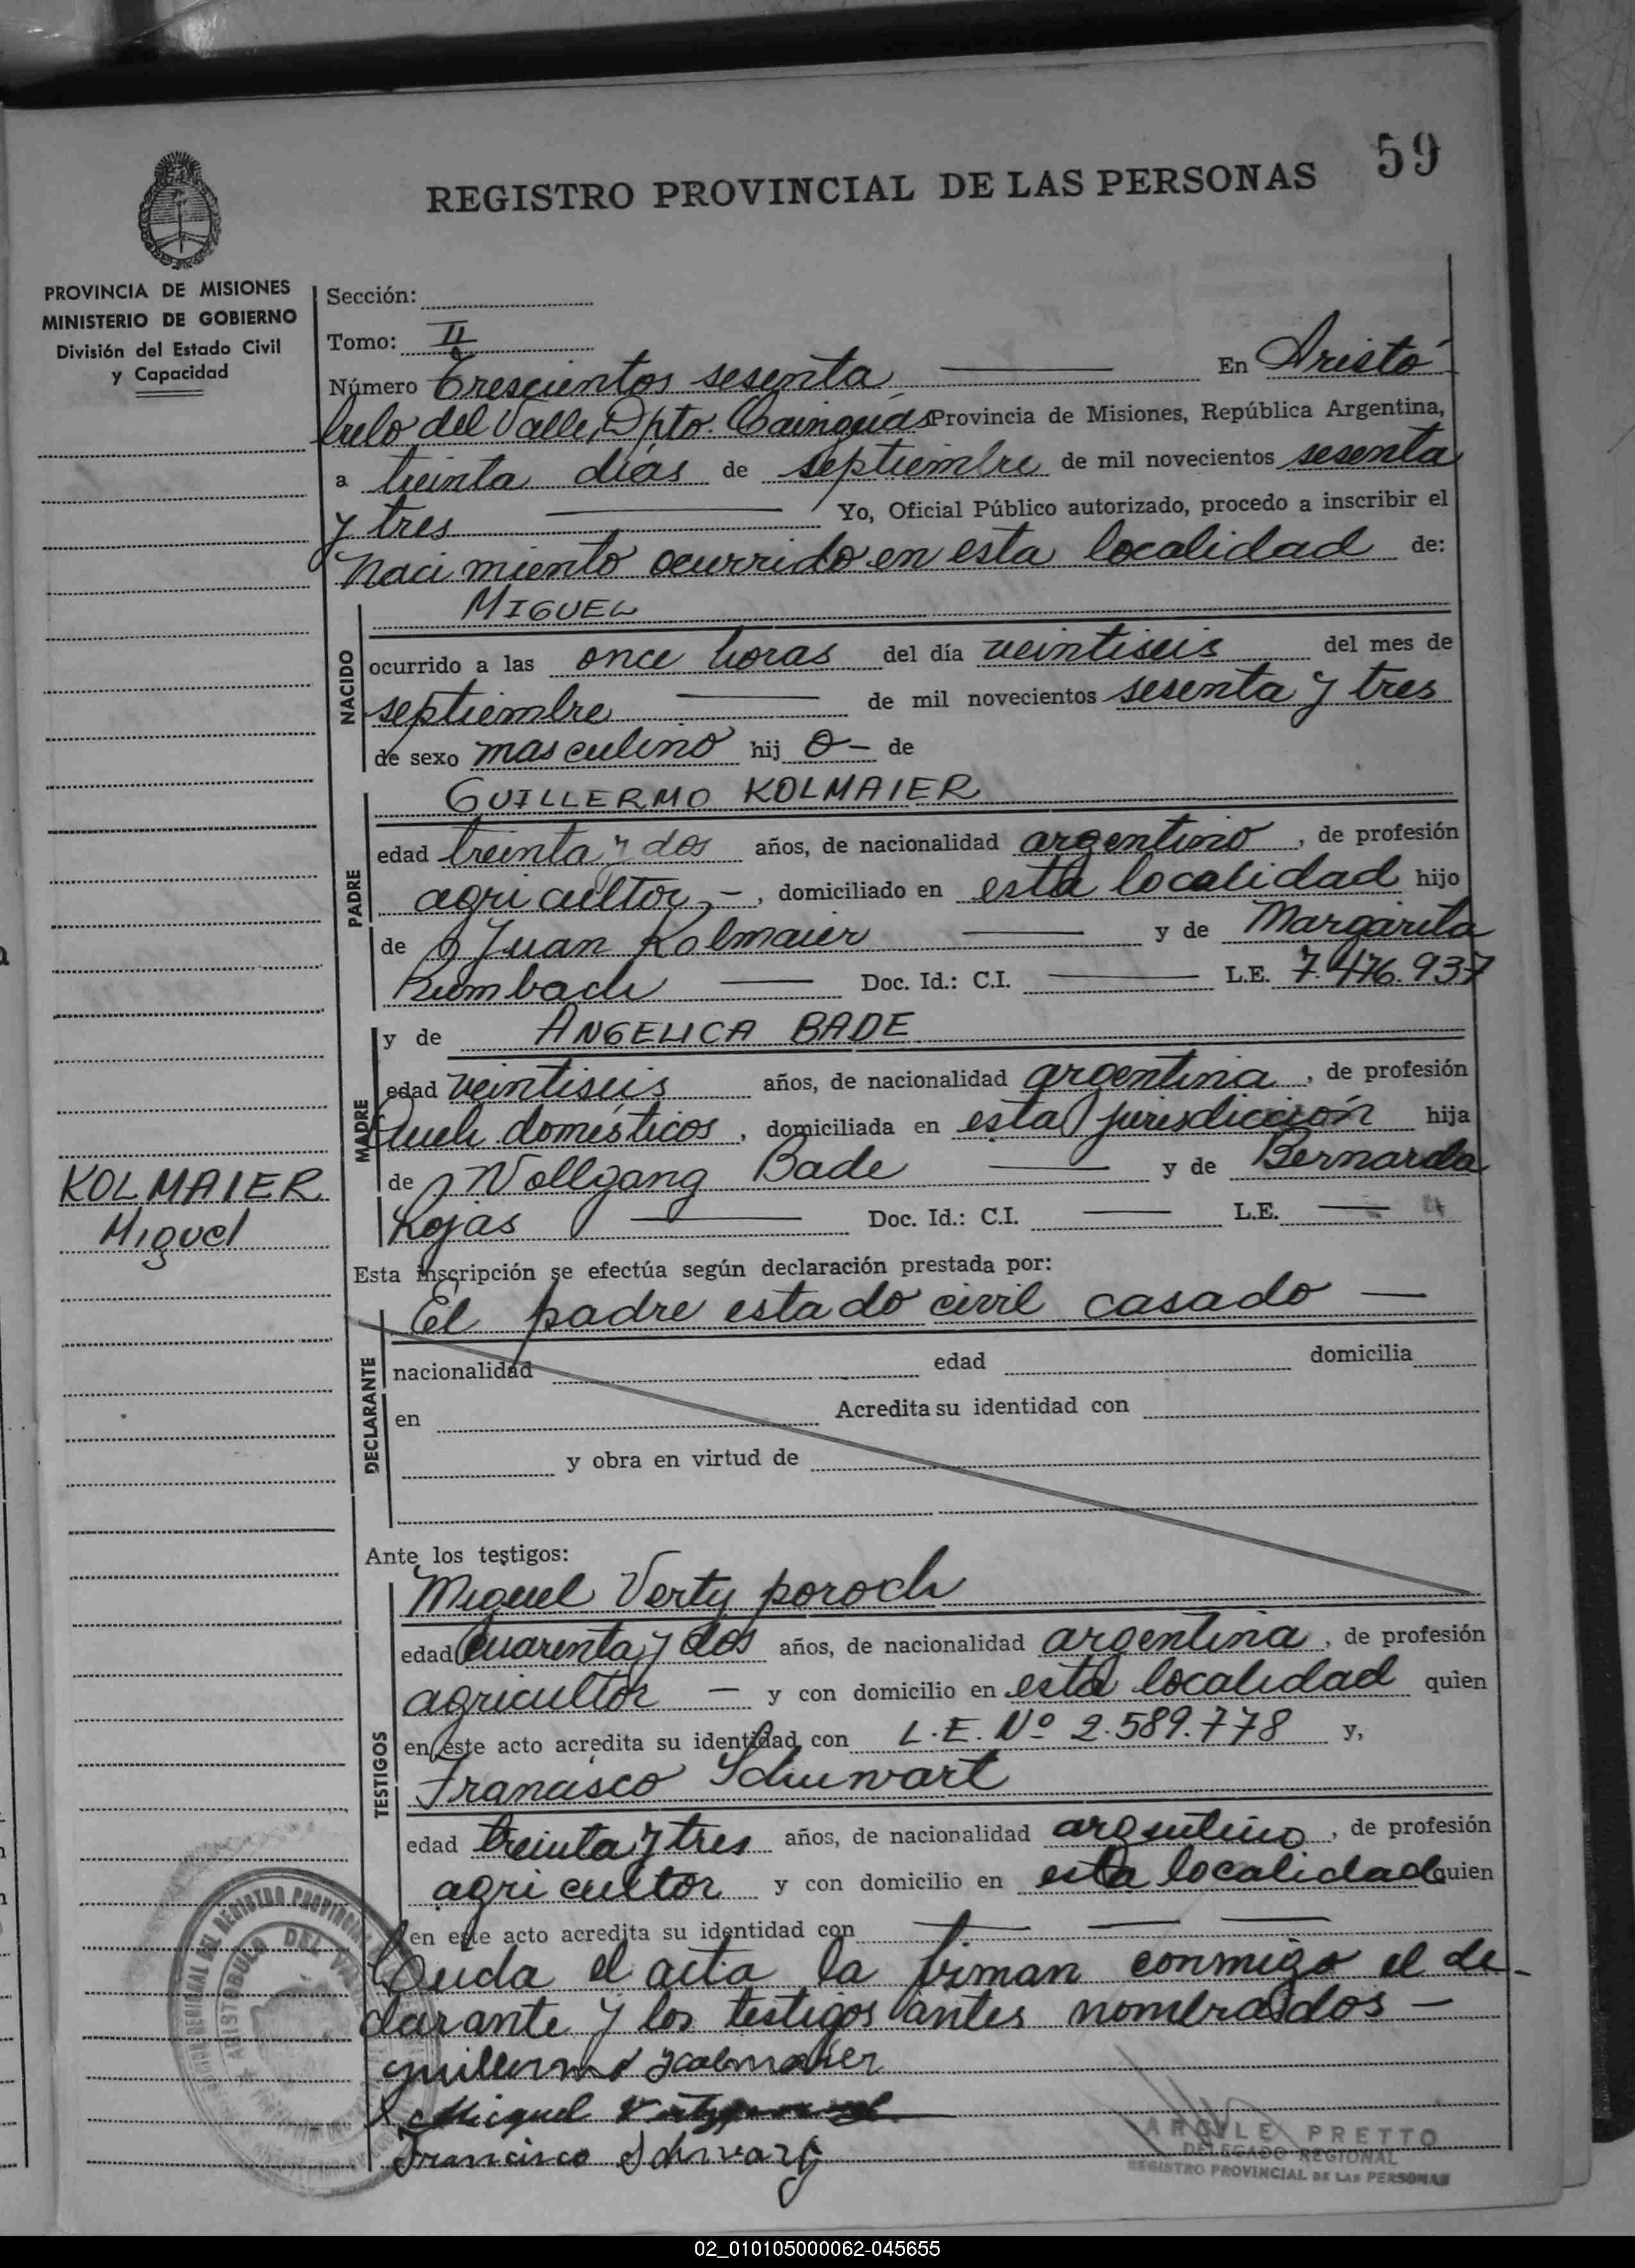 59
REGISTRO PROVINCIAL DE LAS PERSONAS
PROVINCIA DE MISIONES
MINISTERIO DE GOBIERNO
División del Estado Civil
y Capacidad
Sección:
Tomo: II
Número Trescientos sesenta En Aristó
bulo del Valle, Dpto. Cainguás Provincia de Misiones, República Argentina,
a treinta días de septiembre de mil novecientos sesenta
y tres Yo, Oficial Público autorizado, procedo a inscribir el
Nacimiento ocurrido en esta localidad de:
NACIDO
MIGUEL
ocurrido a las once horas del día veintiseis del mes de
septiembre de mil novecientos sesenta y tres
de sexo masculino hij o- de
PADRE
GUILLERMO KOLMAIER
edad treinta y dos años, de nacionalidad argentino, de profesión
agricultor, -, domiciliado en esta localidad hijo
de Juan Kolmaier y de Margarita
Rumbach Doc. Id.: C.I. L.E. 7.476.937
MADRE
y de ANGELICA BADE
edad veintiseis años, de nacionalidad argentina, de profesión
Queh. domésticos, domiciliada en esta jurisdicción hija
de Wollgang Bade y de Bernarda
Rojas Doc. Id.: C.I. L.E.
KOLMAIER
Miguel
Esta inscripción se efectúa según declaración prestada por:
DECLARANTE
El padre estado civil casado —
nacionalidad edad domicilia
en Acredita su identidad con
y obra en virtud de
Ante los testigos:
TESTIGOS
Miguel Verty poroch
edad Cuarenta y dos años, de nacionalidad argentina, de profesión
agricultor — y con domicilio en esta localidad quien
en este acto acredita su identidad con L.E. Nº 2.589.778 y,
Francisco Schuwart
edad treinta y tres años, de nacionalidad argentino, de profesión
agricultor y con domicilio en esta localidad quien
en este acto acredita su identidad con
Leida el acta la firman conmigo el de-
clarante y los testigos antes nombrados —
guillermo kolmaier
Miguel
Francisco Schwarz
ARGILE PRETTO
DELEGADO REGIONAL
REGISTRO PROVINCIAL DE LAS PERSONAS
02_010105000062-045655